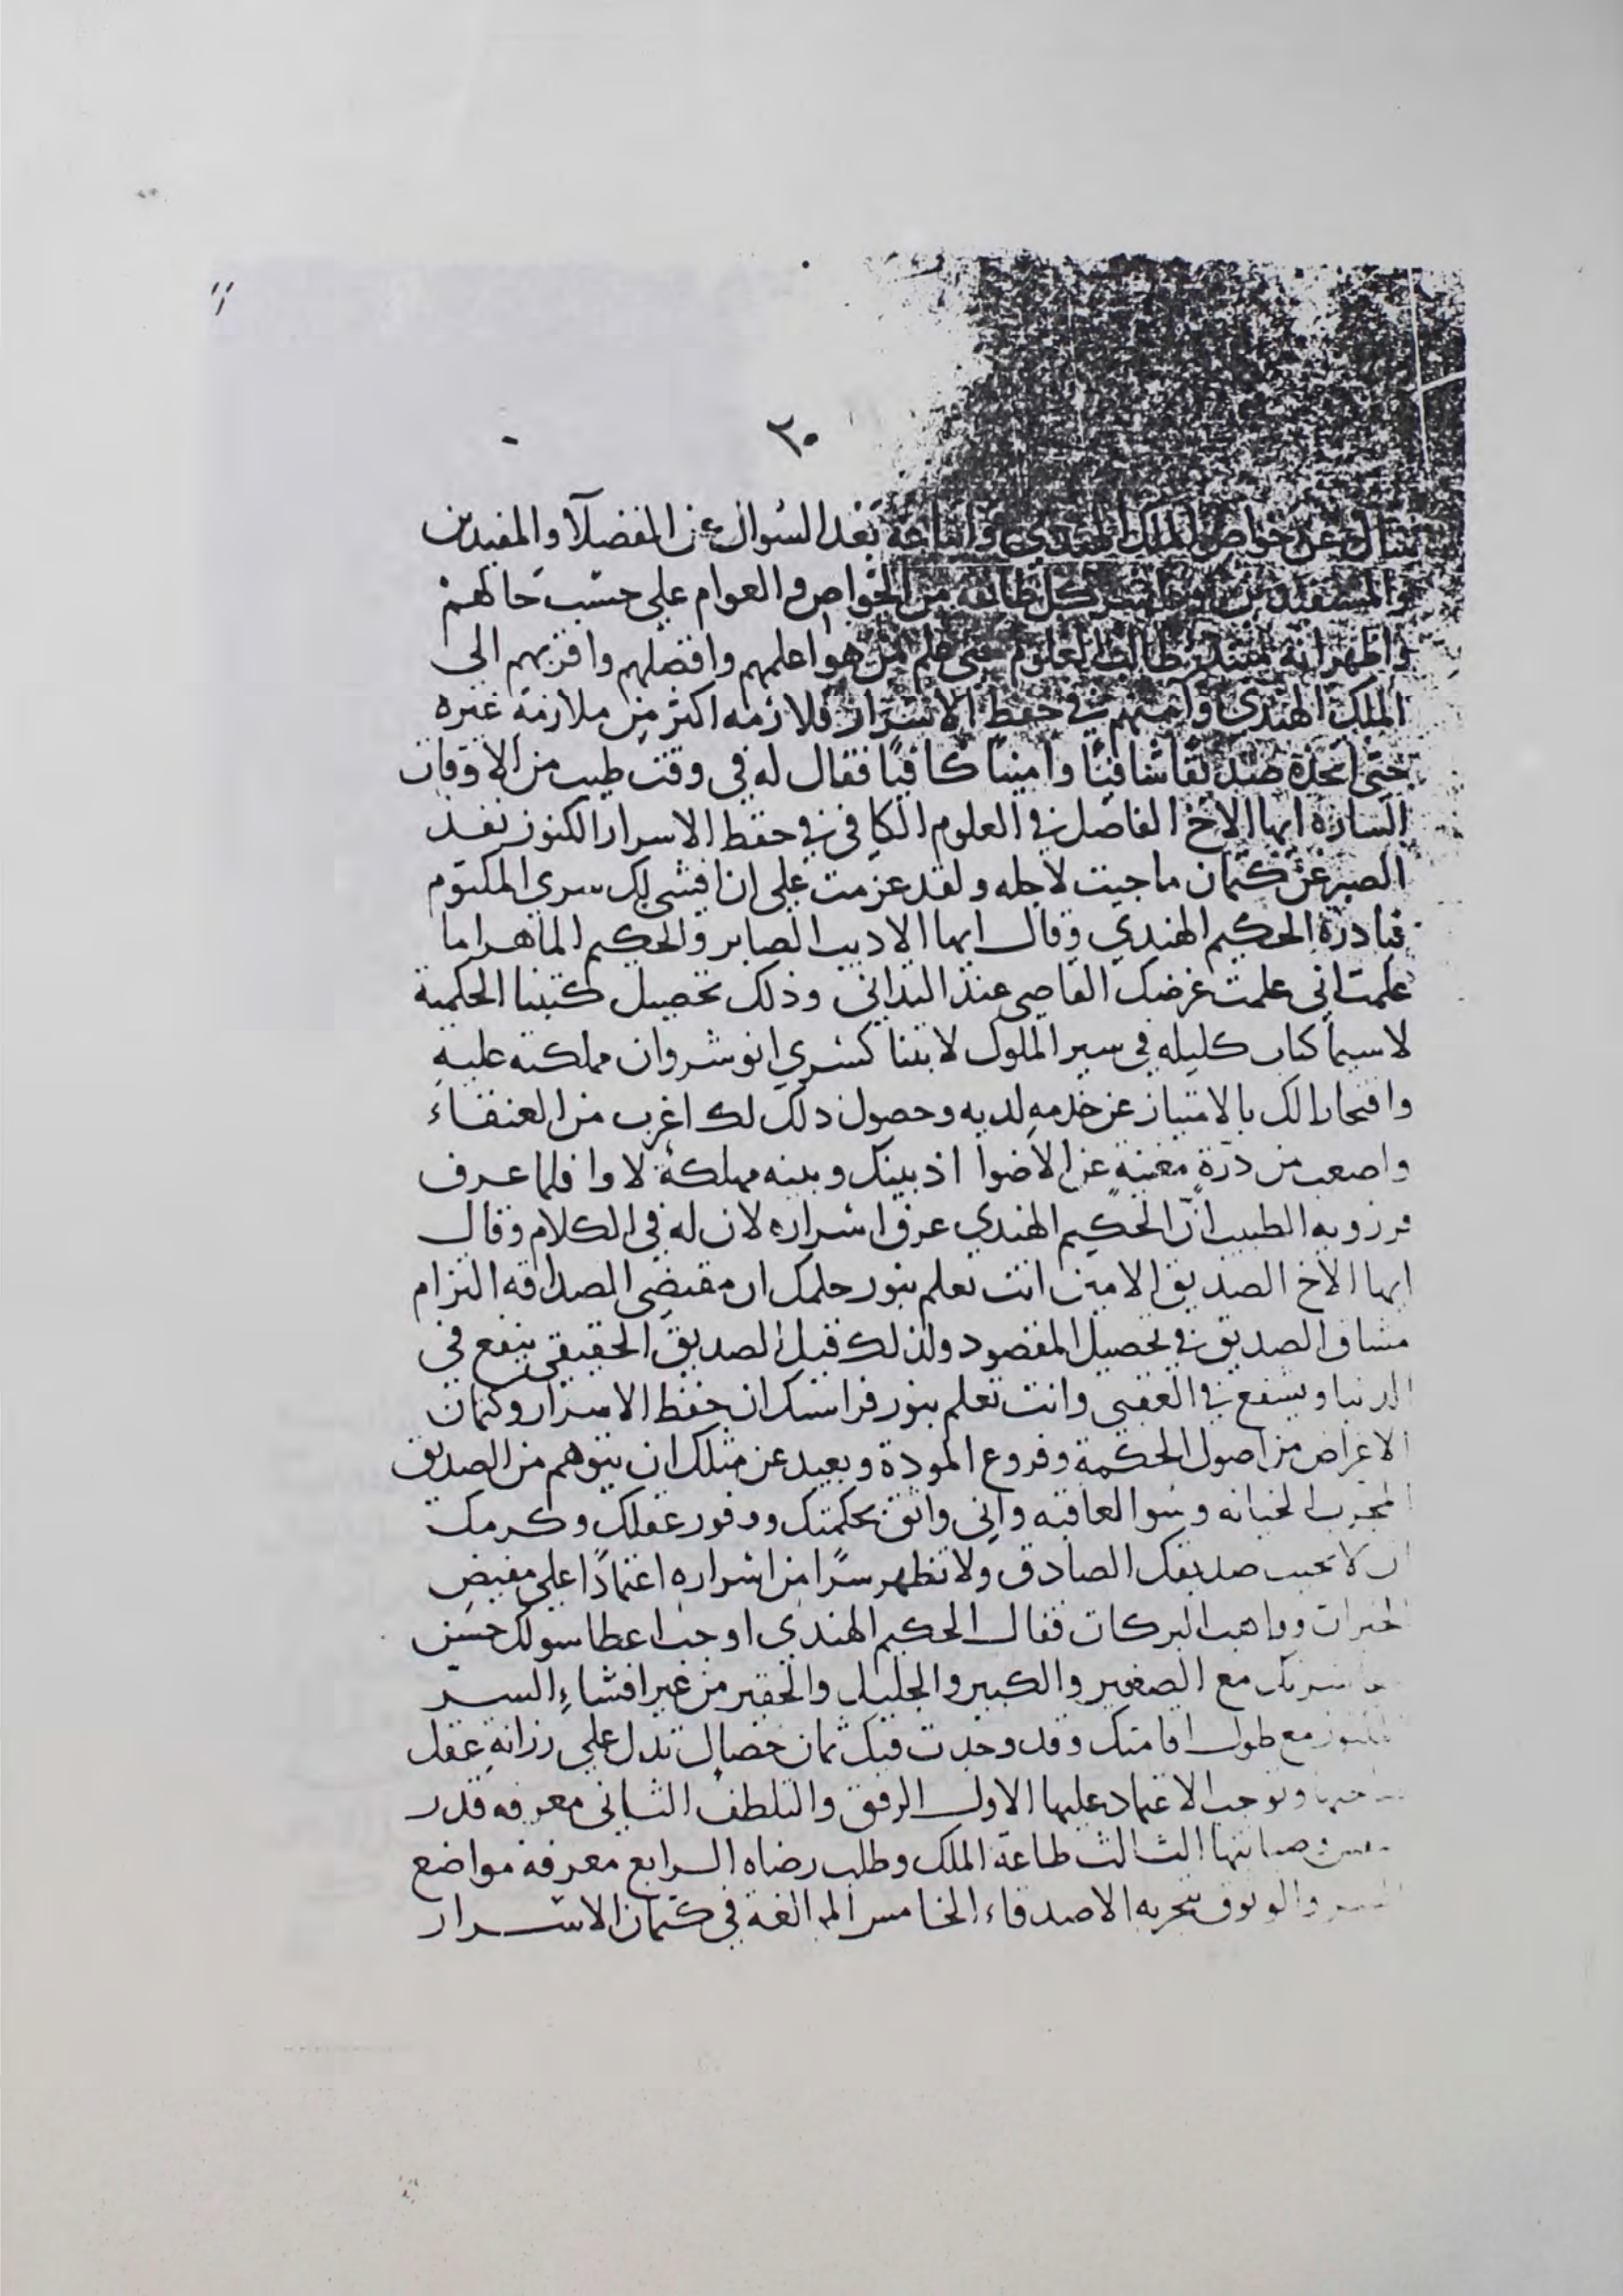 ٣٠
سال عن خواص الملك الهندي واتباعه بعد السوال عن الفضلآ والمفيدين
والمستفيدين كل طائفة من الخواص والعوام على حسب حالهم
واظهر انه طالب العلوم حتى علم من هو اعلمهم وافضلهم واقربهم الى
الملك الهندي وآمنهم في حفظ الاسرار فلازمه اكثر من ملازمة غيره
حتى اتخذه صديقا شافيًا وامينًا كافيًا فقال له في وقت طيب من الاوقات
السارة ايها الاخ الفاضل في العلوم الكافي في حفظ الاسرار الكنوز نفد
الصبر عن كتمان ما جيت لاجله ولقد عزمت على ان افشى لك سري المكتوم
فبادره الحكيم الهندي وقال ايها الاديب الصابر والحكيم الماهر اما
علمت اني علمت غرضك القاصي عند التداني وذلك تحصيل كتبنا الحكمية
لا سيما كتاب كليله في سير الملوك لابتنا كسري انوشروان مملكته عليه
وافتحارا لك بالامتياز عن خدمه لديه وحصول ذلك لك اغرب من العنقاء
واصعب من درّة مغنية عن الاضوا اذ بينك وبينه مهلكة لاوا فلما عرف
برزويه الطبيب انّ الحكيم الهندي عرف اسراره لان له في الكلام وقال
ايها الاخ الصديق الامين انت تعلم بنور حلمك ان مقتضى الصداقه التزام
مشاق الصديق في تحصيل المقصود ولذلك قيل الصديق الحقيقي ينفع في
الدنيا ويشفع في العقبى وانت تعلم بنور فراستك ان حفظ الاسرار وكتمان
الاغراض من اصول الحكمة وفروع المودة وبعيد عن مثلك ان يتوهم من الصديق
المجرب الخيانه وسو العاقبه واني واثق بحكمتك ووفور عقلك وكرمك
ان لا تخيب صديقك الصادق ولا تظهر سرًا من اسراره اعتمادًا على مفيض
الخيرات وواهب البركات فقال الحكيم الهندي اوجب اعطا سولك حسن
معاشرتك مع الصغير والكبير والجليل والحقير من غير افشاء السر
مع طول اقامتك وقد وجدت فيك ثمان خصال تدل على رزانة عقل
صاحبها وتوجب الاعتماد عليها الاول الرفق والتلطف الثاني معرفه قدر
وصيانتها الثالث طاعة الملك وطلب رضاه الرابع معرفه مواضع
السر والوثوق بتجربه الاصدقاء الخامس المبالغة في كتمان الاسرار